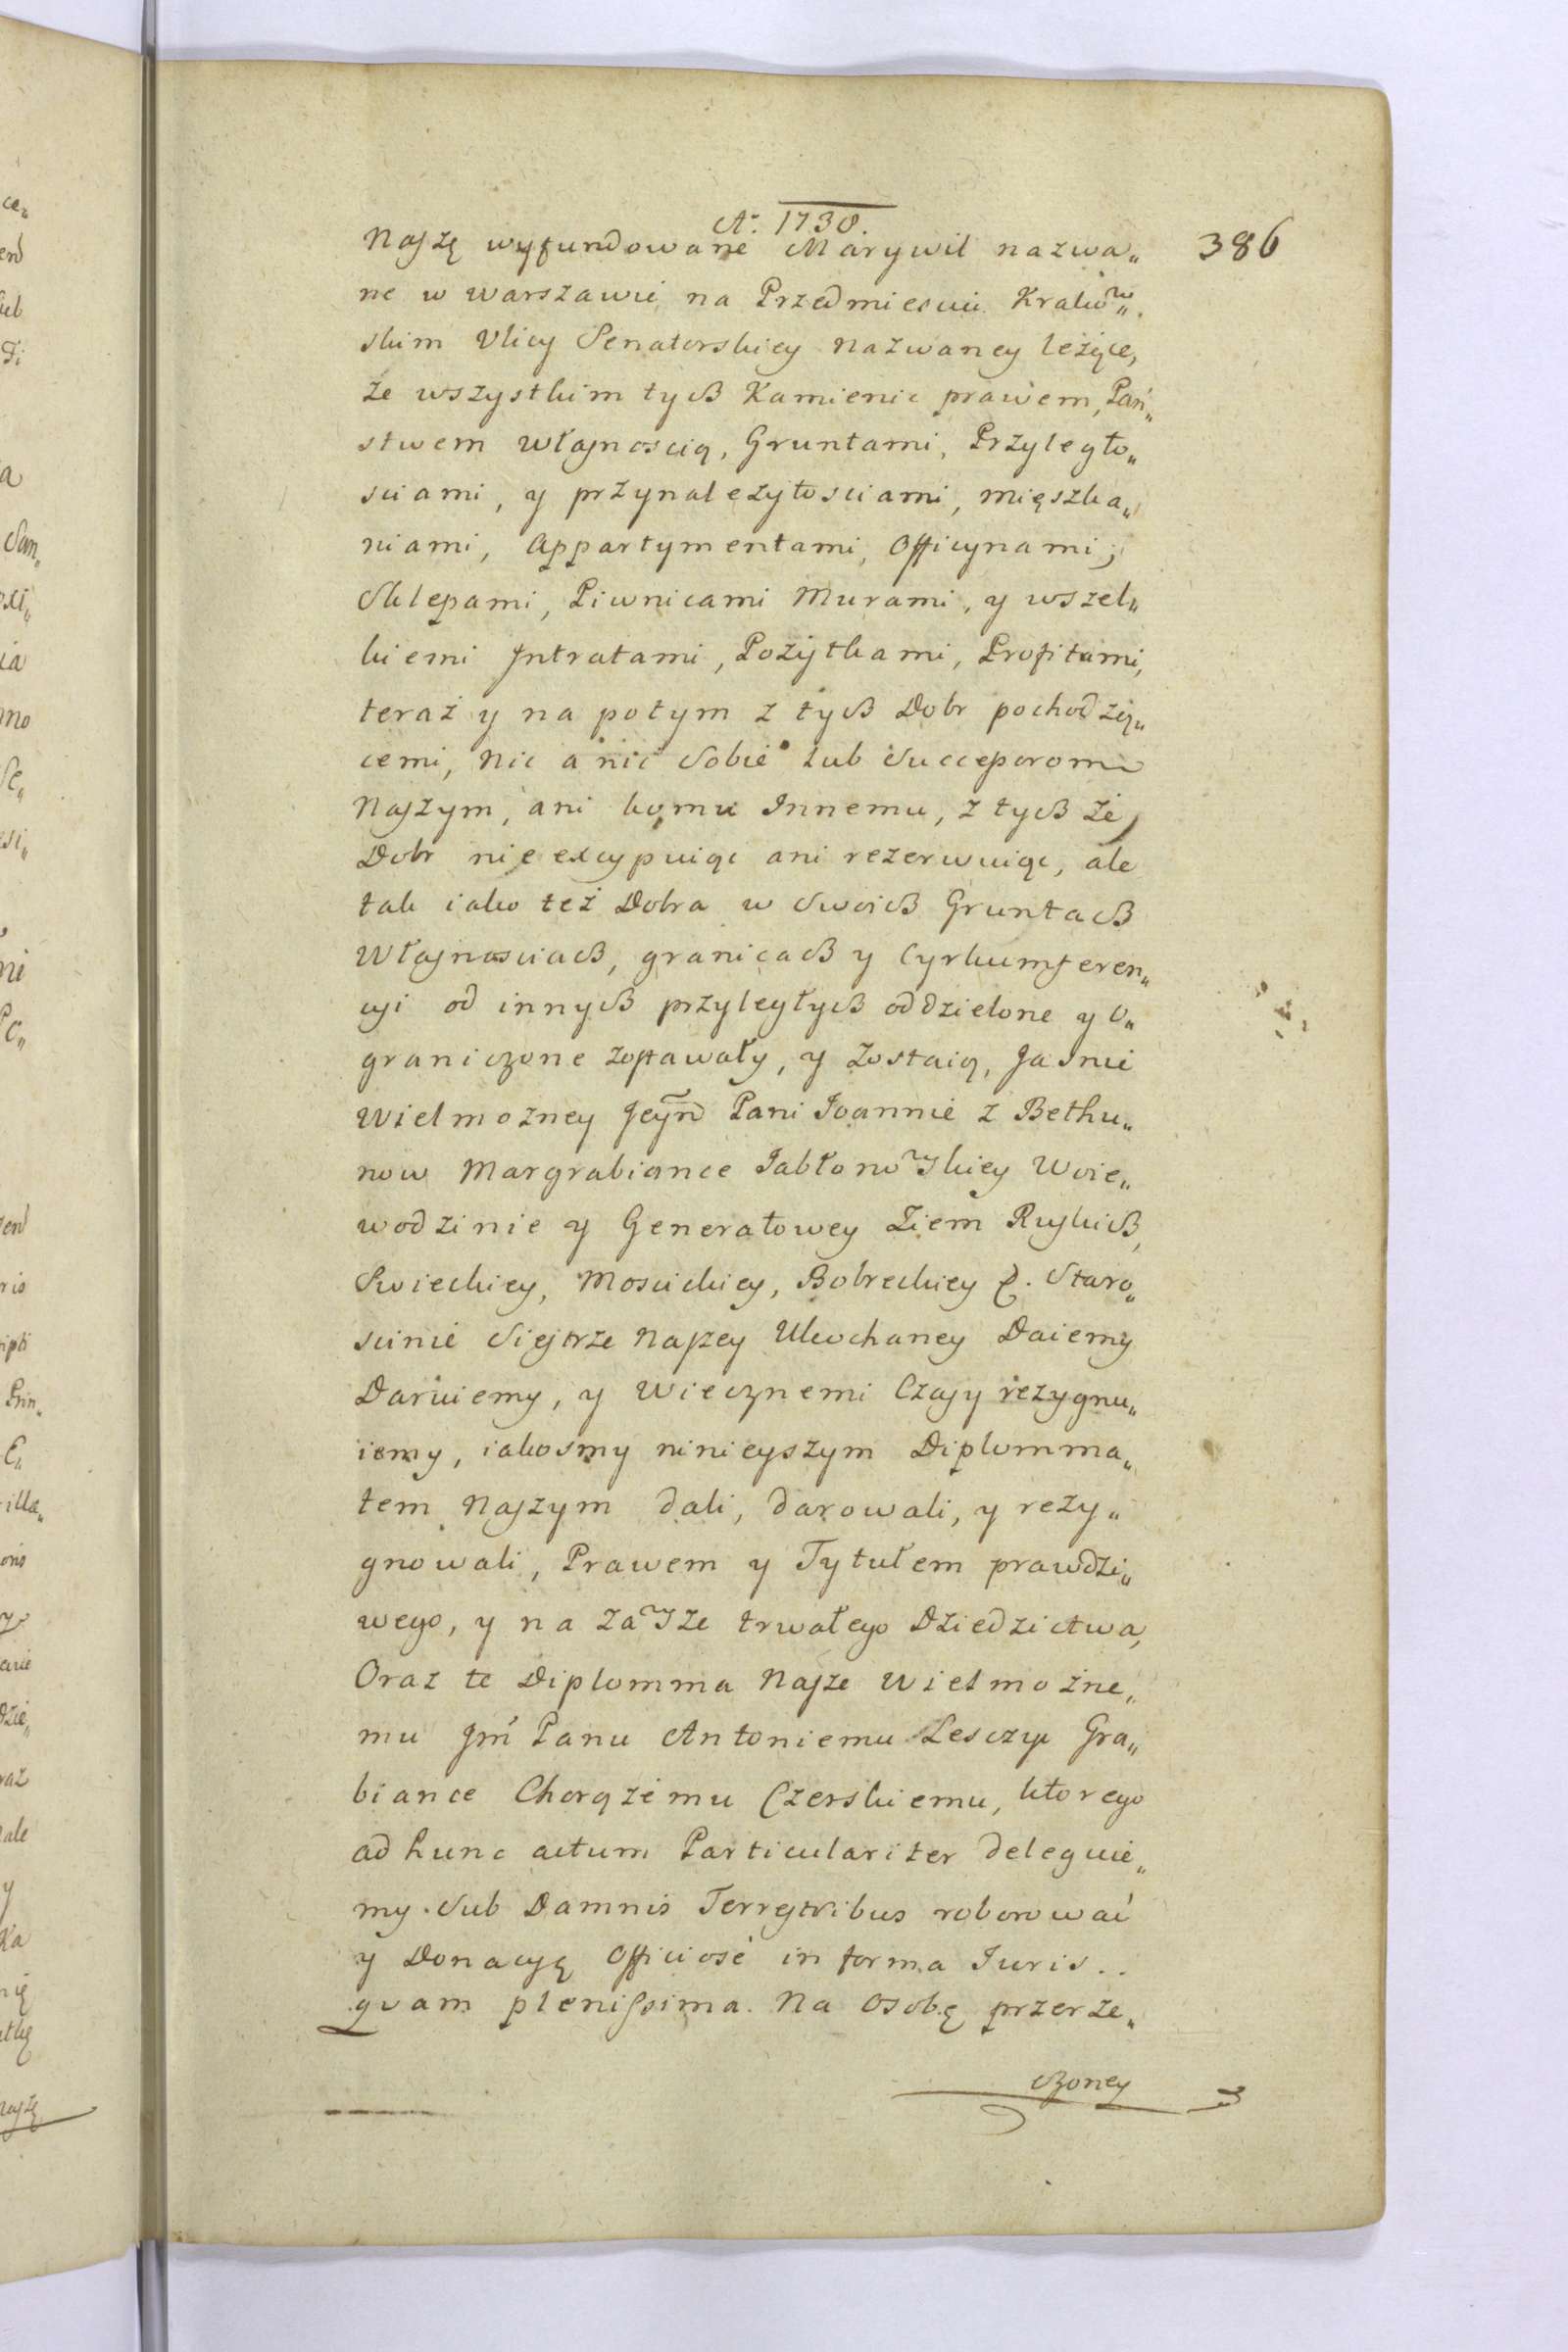 A. 1738.
386
Naszę wyfundowane Marywil nazwa„
ne w warszawie na Przedmiesciu Krakow„
skim Vlicy Senatorskiey nazwaney leżące,
ze wszystkim tych Kamienic prawem, Pań„
stwem własnoscią, Gruntami, Przyległo„
sciami, y przynalezytosciami, mięszka„
niami, Appartymentami, Officynami;
Sklepami, Piwnicami Murami, y wszel„
kiemi Jntratami, Pożytkami, Profitami,
teraz y na potym z tych Dobr pochodzą„
cemi, nic a nic Sobie lub Successorom
Naszym, ani komu Innemu, z tych że
Dobr nie excypuiąc ani rezerwuiąc, ale
tak iako też Dobra w Swoich Gruntach
Własnosciach, granicach y Cyrkumferen„
cyi od innych przyległych oddzielone y o„
graniczone zostawały, y zostaią, Jasnie
Wielmozney Jeymci Pani Joannie z Bethu„
now Margrabiance Jabłonowskiey Woie„
wodzinie y Generałowey Ziem Ruskich,
Swieckiey, Moscickiey, Bobreckiey &. Staro„
scinie Siestrze Naszey Ukochaney Daiemy
Daruiemy, y Wiecznemi Czasy rezygnu„
iemy, iakosmy ninieyszym Diplomma„
tem Naszym dali, darowali, y rezy„
gnowali, Prawem y Tytułem prawdzi„
wego, y na zawsze trwałego Dziedzictwa,
Oraz te Diplomma Nasze Wielmożne„
mu Jm Panu Antoniemu Lesczyc Gra„
biance Chorążemu Czerskiemu, ktorego
ad hunc actum Particulariter deleguie„
my. Sub Damnis Terrestribus roborować
y Donacyę Officiose in forma Iuris..
quam plenissima. Na Osobę przerze„
czoney